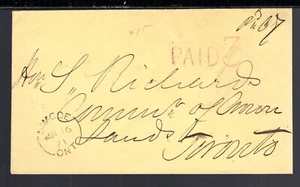 Pd 67
PAID 3
Hon S Richards
Commr of Crown
Lands
Toronto
SIMCOE
16
71
ONT